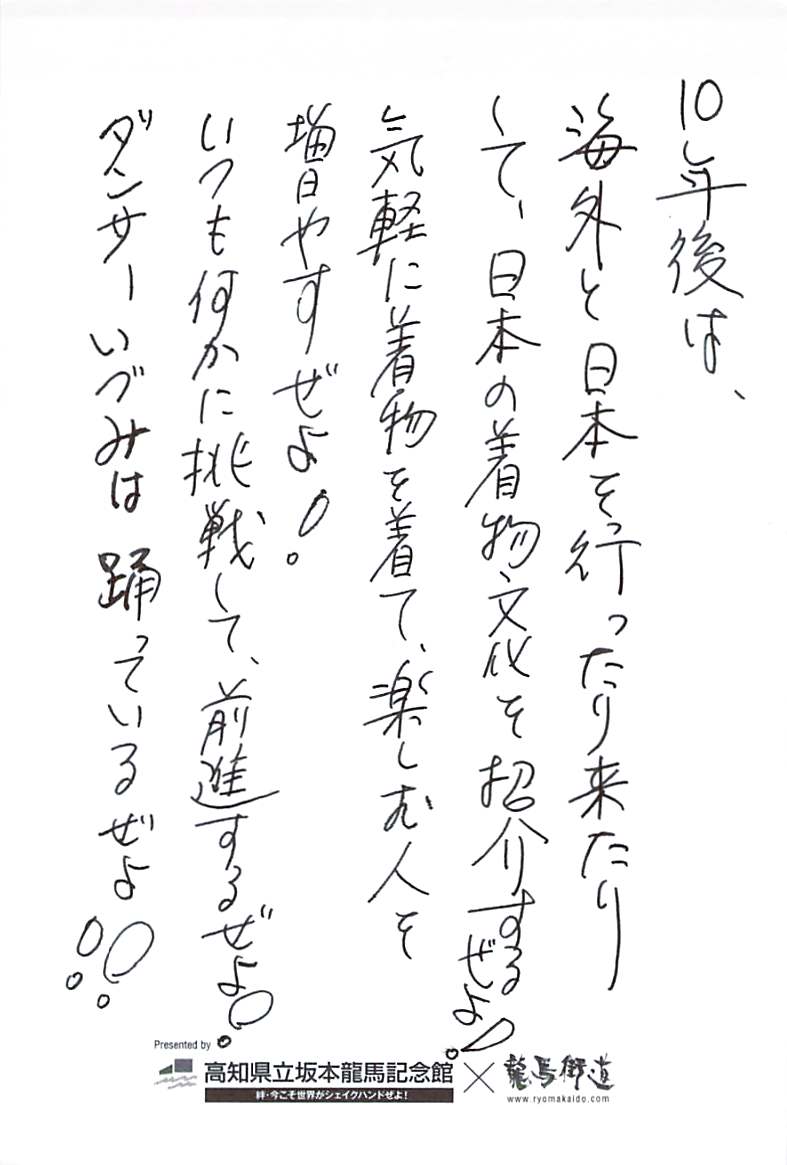 10年後は、
海外と日本を行ったり来たり
して、日本の着物文化を紹介するぜよ!
気軽に着物を着て、楽しむ人を
増やすぜよ!
いつも何かに挑戦して、前進するぜよ!
ダンサーいづみは踊っているぜよ!!
Presented by
高知県立坂本龍馬記念館×龍馬街道
絆・今こそ世界がシェイクハンドぜよ!
www.ryomakaido.com